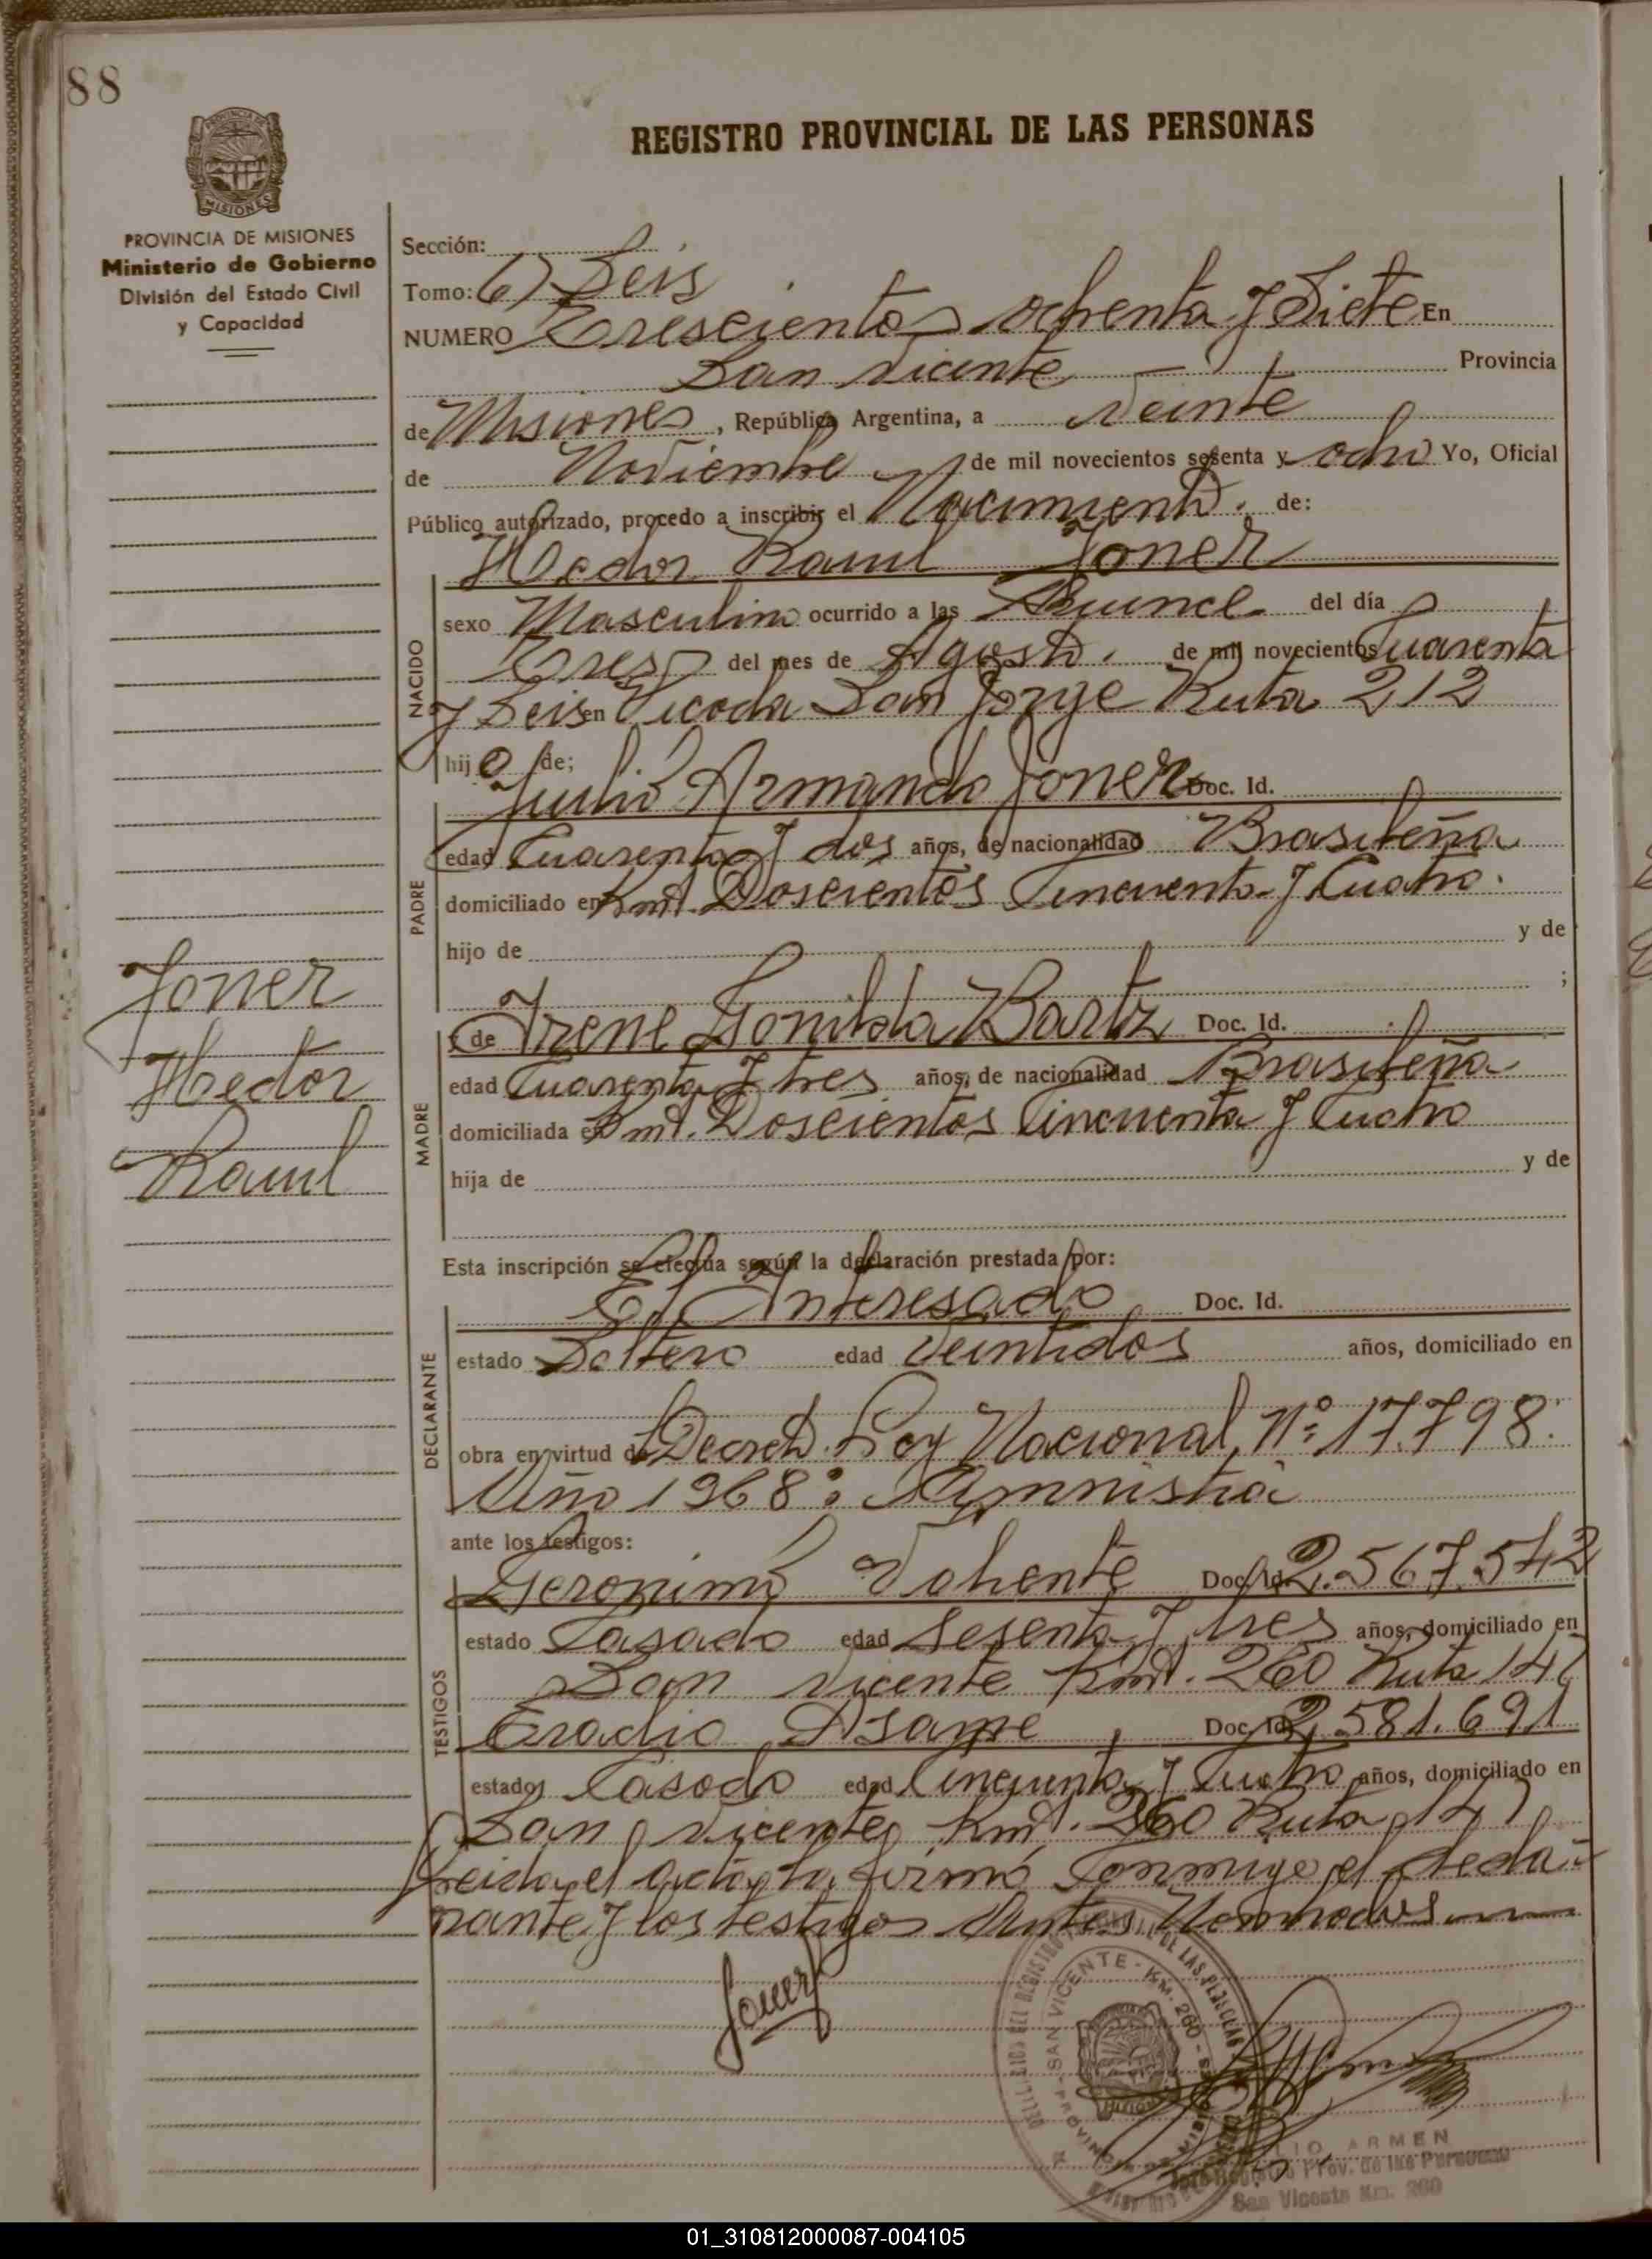 88
REGISTRO PROVINCIAL DE LAS PERSONAS
MISIONES
PROVINCIA DE MISIONES
Ministerio de Gobierno
División del Estado Civil
y Capacidad
Sección:
Tomo: 6) Seis
NUMERO Trescientos ochenta y Siete En
San Vicente Provincia
de Misiones, República Argentina, a veinte
de Noviembre de mil novecientos sesenta y ocho Yo, Oficial
Público autorizado, procedo a inscribir el Nacimiento. de:
Hector Raul Joner
NACIDO
sexo Masculino ocurrido a las Quince del día
Tres del mes de Agosto. de mil novecientos Cuarenta
y Seis en Picada San Jorge Ruta 212
hijo de;
Julio Armando Joner Doc. Id.
PADRE
edad Cuarenta y dos años, de nacionalidad Brasileña
domiciliado en Kmt. Doscientos Cincuenta y Cuatro.
hijo de y de
;
Joner
Hector
Raul
MADRE
y de Irene Bartz Doc. Id.
edad Cuarenta y tres años, de nacionalidad Brasileña
domiciliada en Kmt. Doscientos Cincuenta y Cuatro
hija de y de
Esta inscripción se efectúa según la declaración prestada por:
El Interesado Doc. Id.
DECLARANTE
estado Soltero edad veintidos años, domiciliado en
obra en virtud de Decreto Ley Nacional, Nº: 17.798.
Año 1968: Amnistia
ante los testigos:
TESTIGOS
Geronimo Valiente Doc. Id. 2.567.542
estado Casado edad Sesenta y tres años, domiciliado en
San Vicente Kmt. 260 Ruta 14
Eradio Doc. Id. 2.581.691
estado Casado edad Cincuenta y Cuatro años, domiciliado en
San Vicente Kmt. 260 Ruta 14
Leida el acta, la firmó Conmigo el decla-
rante y los testigos Antes Nonrados
Joner
SAN VICENTE - KM. 260
ARMEN
Prov. de las Personas
San Vicente Km. 260
01_310812000087-004105